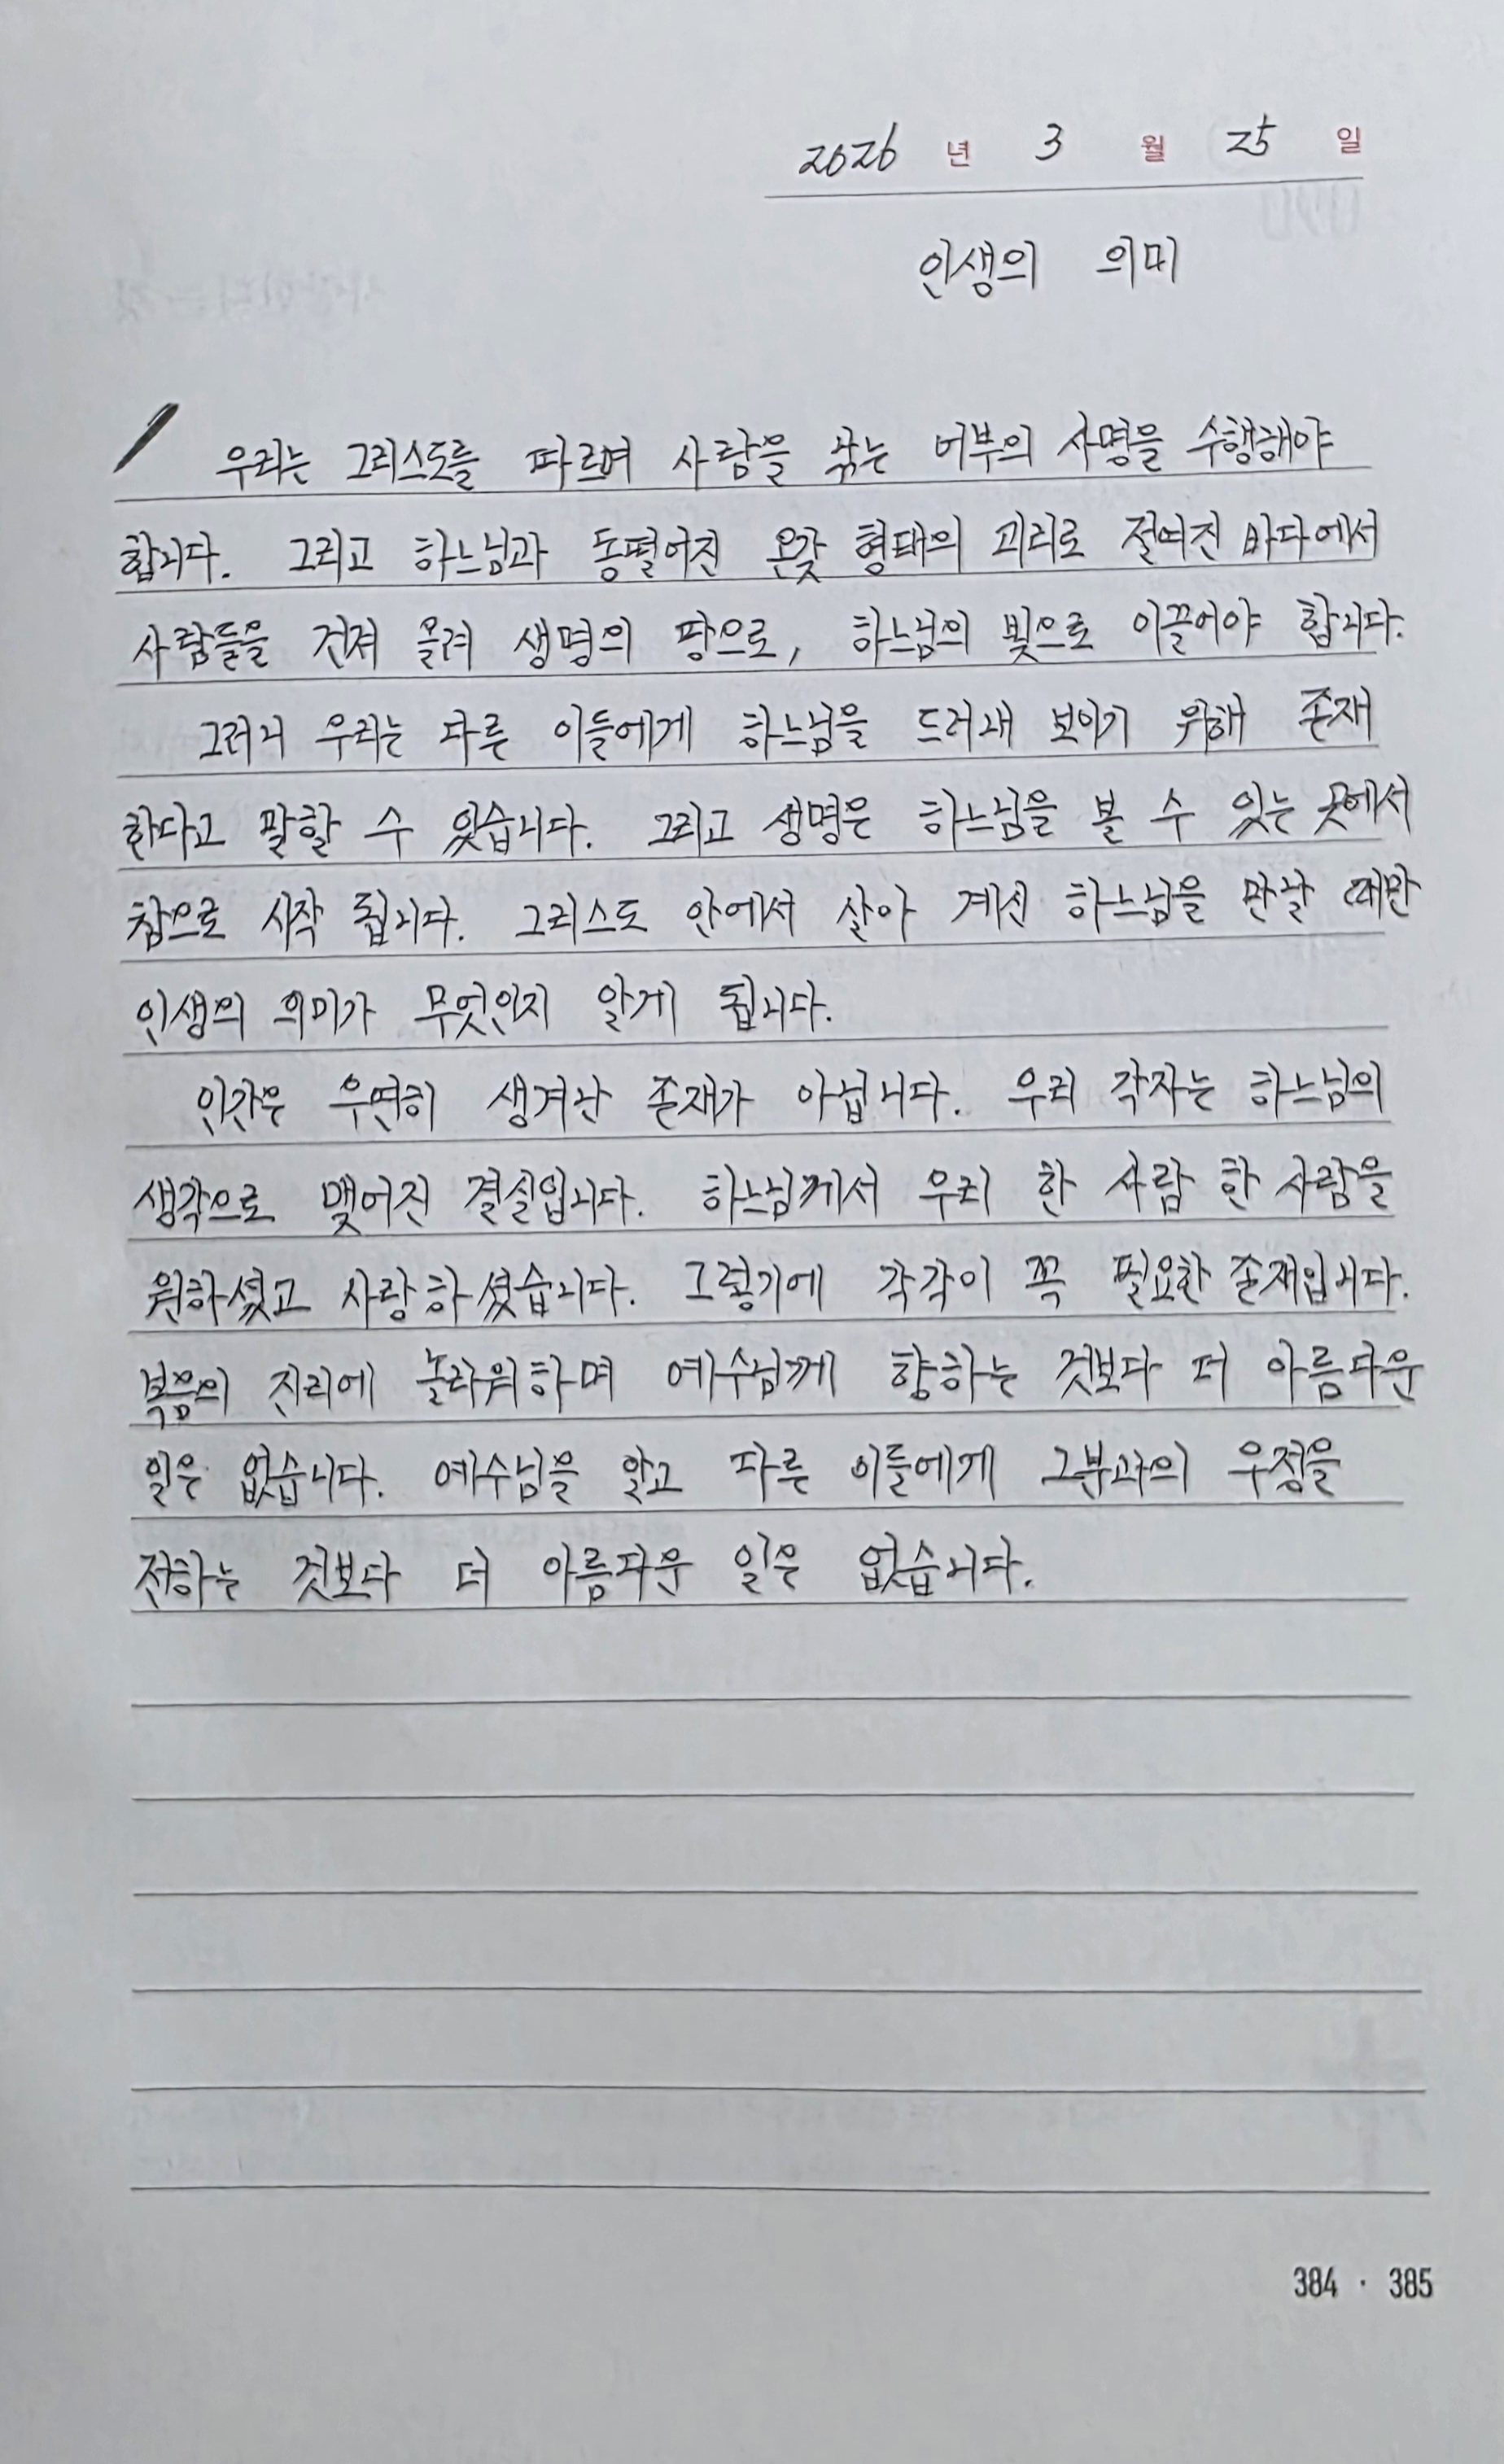 2026 년 3 월 25 일
인생의 의미
우리는 그리스도를 따르며 사람을 낚는 어부의 사명을 수행해야
합니다. 그리고 하느님과 동떨어진 온갖 형태의 괴리로 절여진 바다에서
사람들을 건져 올려 생명의 땅으로, 하느님의 빛으로 이끌어야 합니다.
그러니 우리는 다른 이들에게 하느님을 드러내 보이기 위해 존재
한다고 말할 수 있습니다. 그리고 생명은 하느님을 볼 수 있는 곳에서
참으로 시작 됩니다. 그리스도 안에서 살아 계신 하느님을 만날 때만
인생의 의미가 무엇인지 알게 됩니다.
인간은 우연히 생겨난 존재가 아닙니다. 우리 각자는 하느님의
생각으로 맺어진 결실입니다. 하느님께서 우리 한 사람 한 사람을
원하셨고 사랑하셨습니다. 그렇기에 각각이 꼭 필요한 존재입니다.
복음의 진리에 놀라워하며 예수님께 향하는 것보다 더 아름다운
일은 없습니다. 예수님을 알고 다른 이들에게 그분과의 우정을
전하는 것보다 더 아름다운 일은 없습니다.
384 · 385